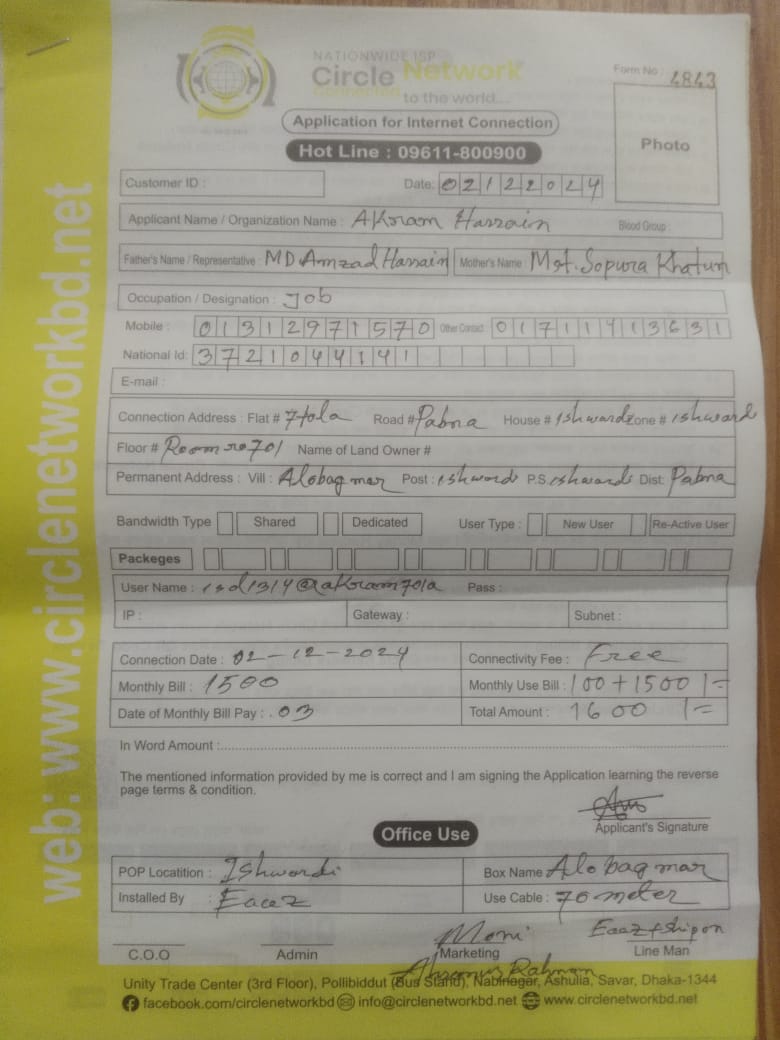 NATIONWIDE ISP
Circle Network
Connected to the world...
Form No : 4843
Application for Internet Connection
Hot Line : 09611-800900
Photo
Customer ID :
Date: 02122024
Applicant Name / Organization Name : AKram Hassain Blood Group :
Father's Name / Representative : MD Amzad Hassain Mother's Name : Mst. Sopura Khatun
Occupation / Designation : Job
Mobile : 01312971570 Other Contact : 01711413631
National Id: 3721044141
E-mail :
Connection Address : Flat # 7tola Road # Pabna House # Ishward Zone # Ishward
Floor # Room no 701 Name of Land Owner #
Permanent Address : Vill : Alobag mar Post : Ishwordi P.S. Ishwardi Dist: Pabna
Bandwidth Type Shared Dedicated User Type : New User Re-Active User
Packeges
User Name : isd1314@akram701a Pass :
IP : Gateway : Subnet :
Connection Date : 02-12-2024 Connectivity Fee : Free
Monthly Bill : 1500 Monthly Use Bill : 100+1500/=
Date of Monthly Bill Pay : 03 Total Amount : 1600/=
In Word Amount :
The mentioned information provided by me is correct and I am signing the Application learning the reverse
page terms & condition.
Applicant's Signature
Office Use
POP Locatition : Ishwordi Box Name Alobag mar
Installed By : Eaaz Use Cable : 70 meter
Moni Eaaz+shipon
C.O.O Admin Marketing Line Man
Rahman
Unity Trade Center (3rd Floor), Pollibiddut (Bus Stand), Nabinagar, Ashulia, Savar, Dhaka-1344
facebook.com/circlenetworkbd info@circlenetworkbd.net www.circlenetworkbd.net
web: www.circlenetworkbd.net